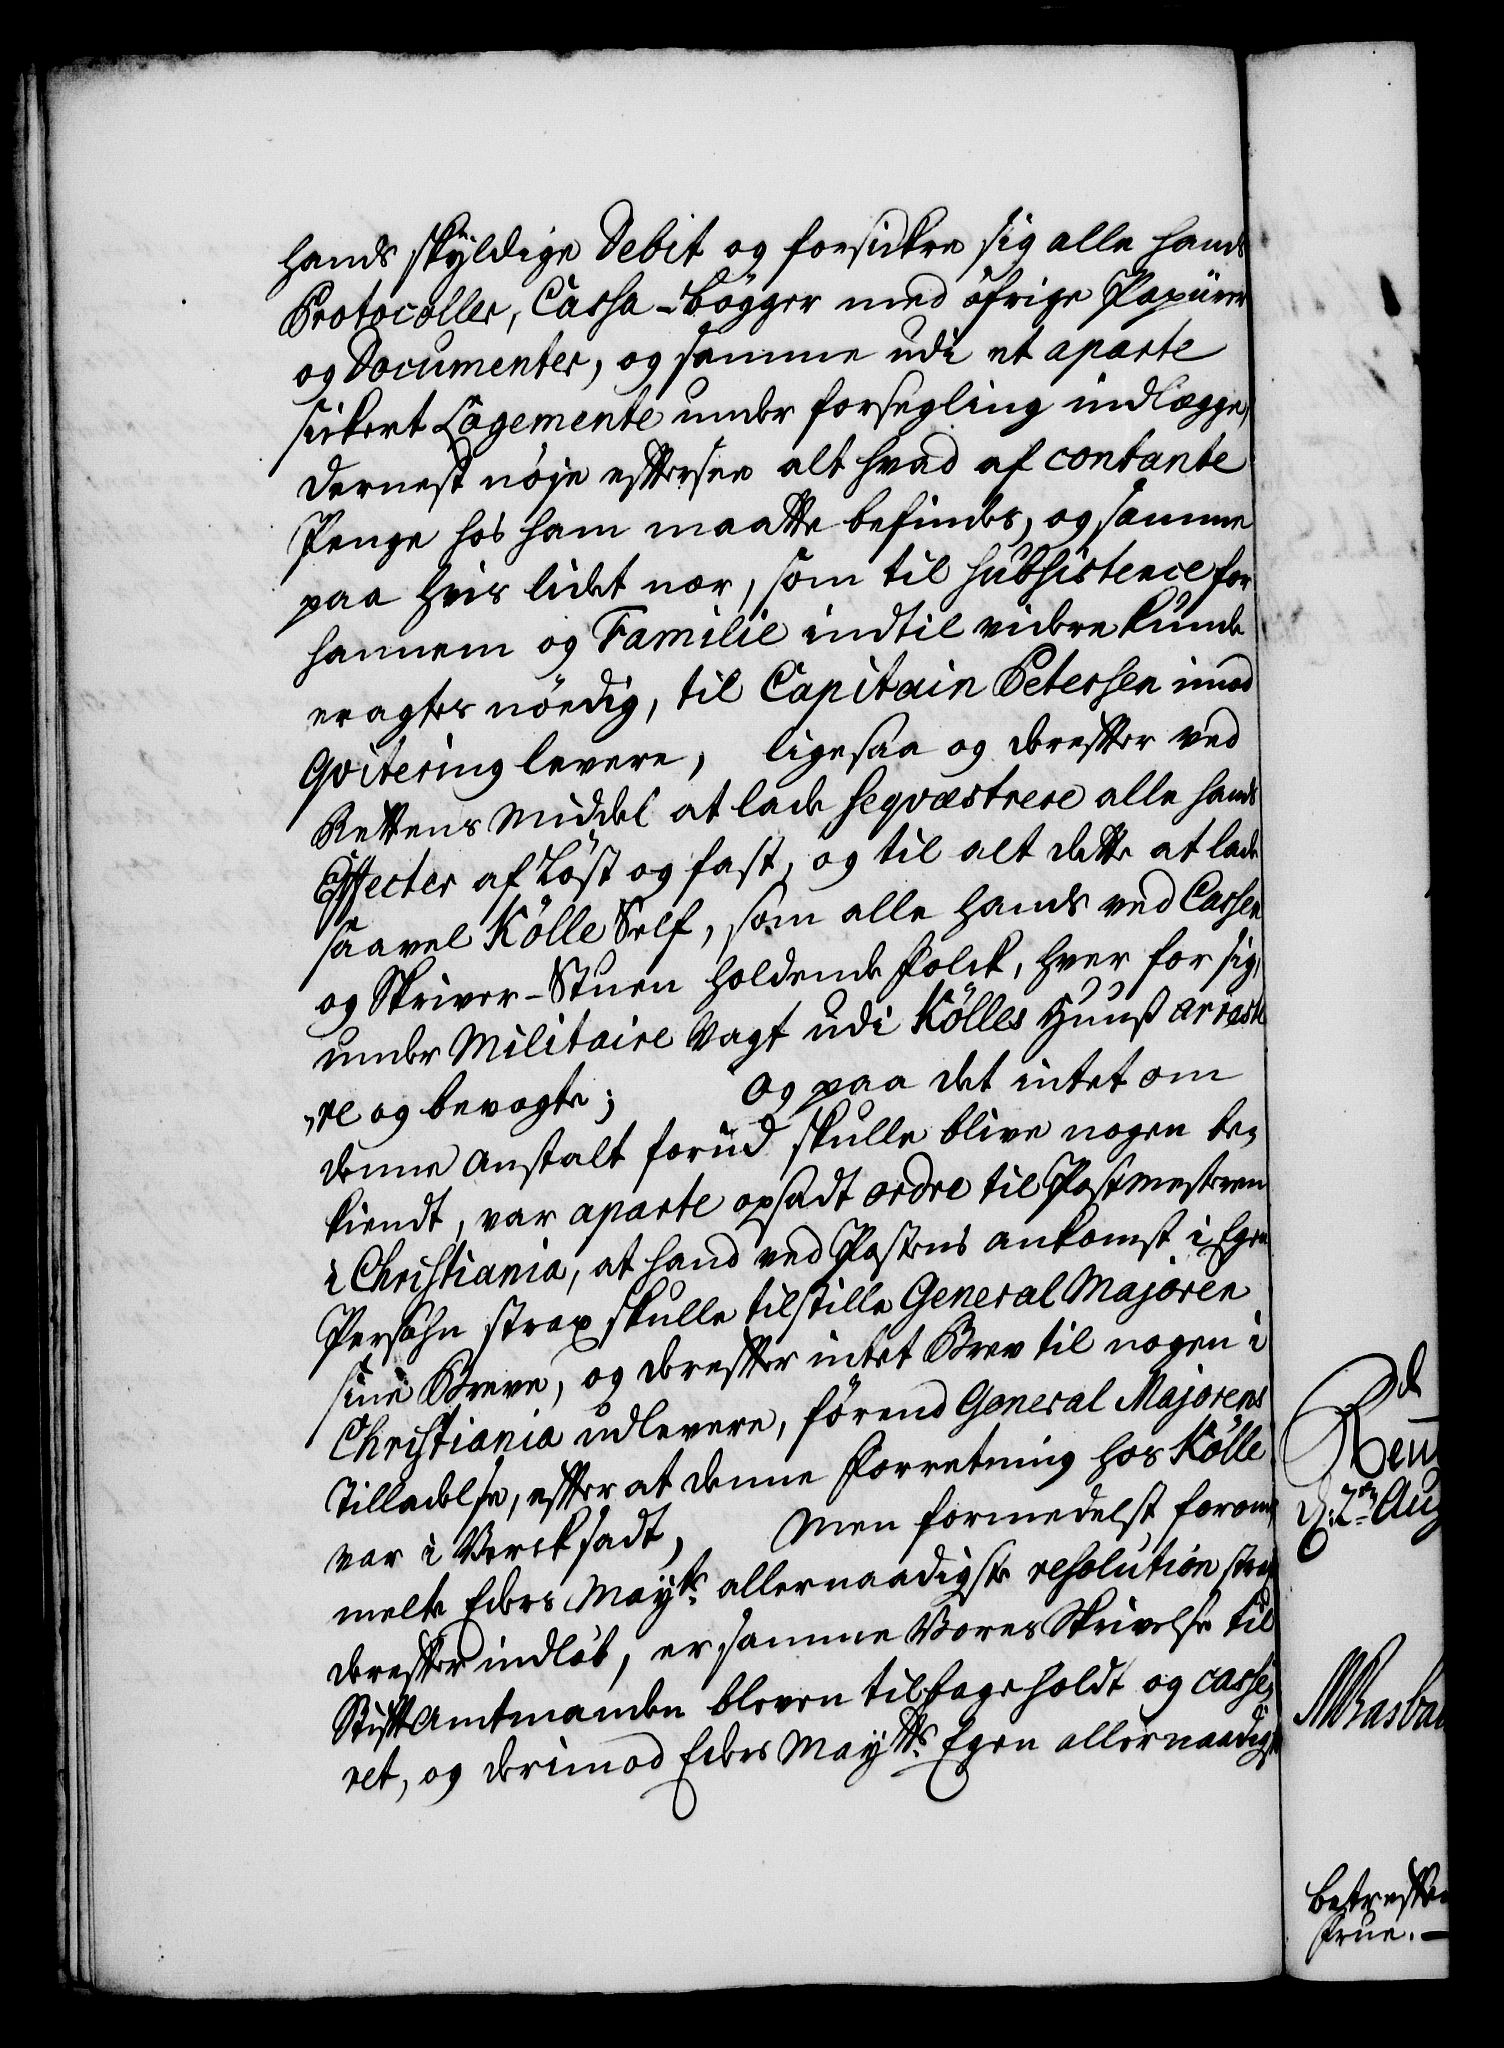 hands skyldige Debit og forsickre sig alle hands
Protocoller, Cassa-Bögger med öfrige Papiirer
og Documenter, og samme udi et aparte
sickert Logemente under forsegling indlægge,
dernest nöje efftersee alt hvad af contante
Penge hos ham maatte befindes, og samme
paa hvis lidet nær, som til subsistence for
hannem og Familie indtil videre kunde
eragtes nöedig, til Capitain Petersen imod
Qvitering levere, ligesaa og dereffter ved
Rettens Middel at lade seqvæstrere alle hands
Effecter af Löst og fast, og til alt dette at lade
saavel Kölle Self, som alle hands ved Cassen
og Skriver-Stuen holdende folck, hver for sig,
under Militaire Vagt udi Kölles Huuß arreste
re og bevogte; Og paa det intet om
denne Anstalt forud skulle blive nogen be-
kiendt, var aparte opsadt ordre til Postmesteren
i Christiania, at hand ved Postens ankomst i Egen
Persohn strax skulle tilstille General Majoren
sine Breve, og dereffter intet Brev til nogen i
Christiania udlevere, förend General Majorens
Tilladelse, effter at denne forretning hos Kölle
var i Verck sadt, Men formedelst forom-
melte Eders Mayts. allernaadigste resolution strax
dereffter indlöb, er samme Vores Skrivelse til
Stifft Amtmanden bleven tilbageholdt og casse-
ret, og derimod Eders Maytts. Egen allernaadigste
de
Rent
d. 2den Aug
betreffen
frue.